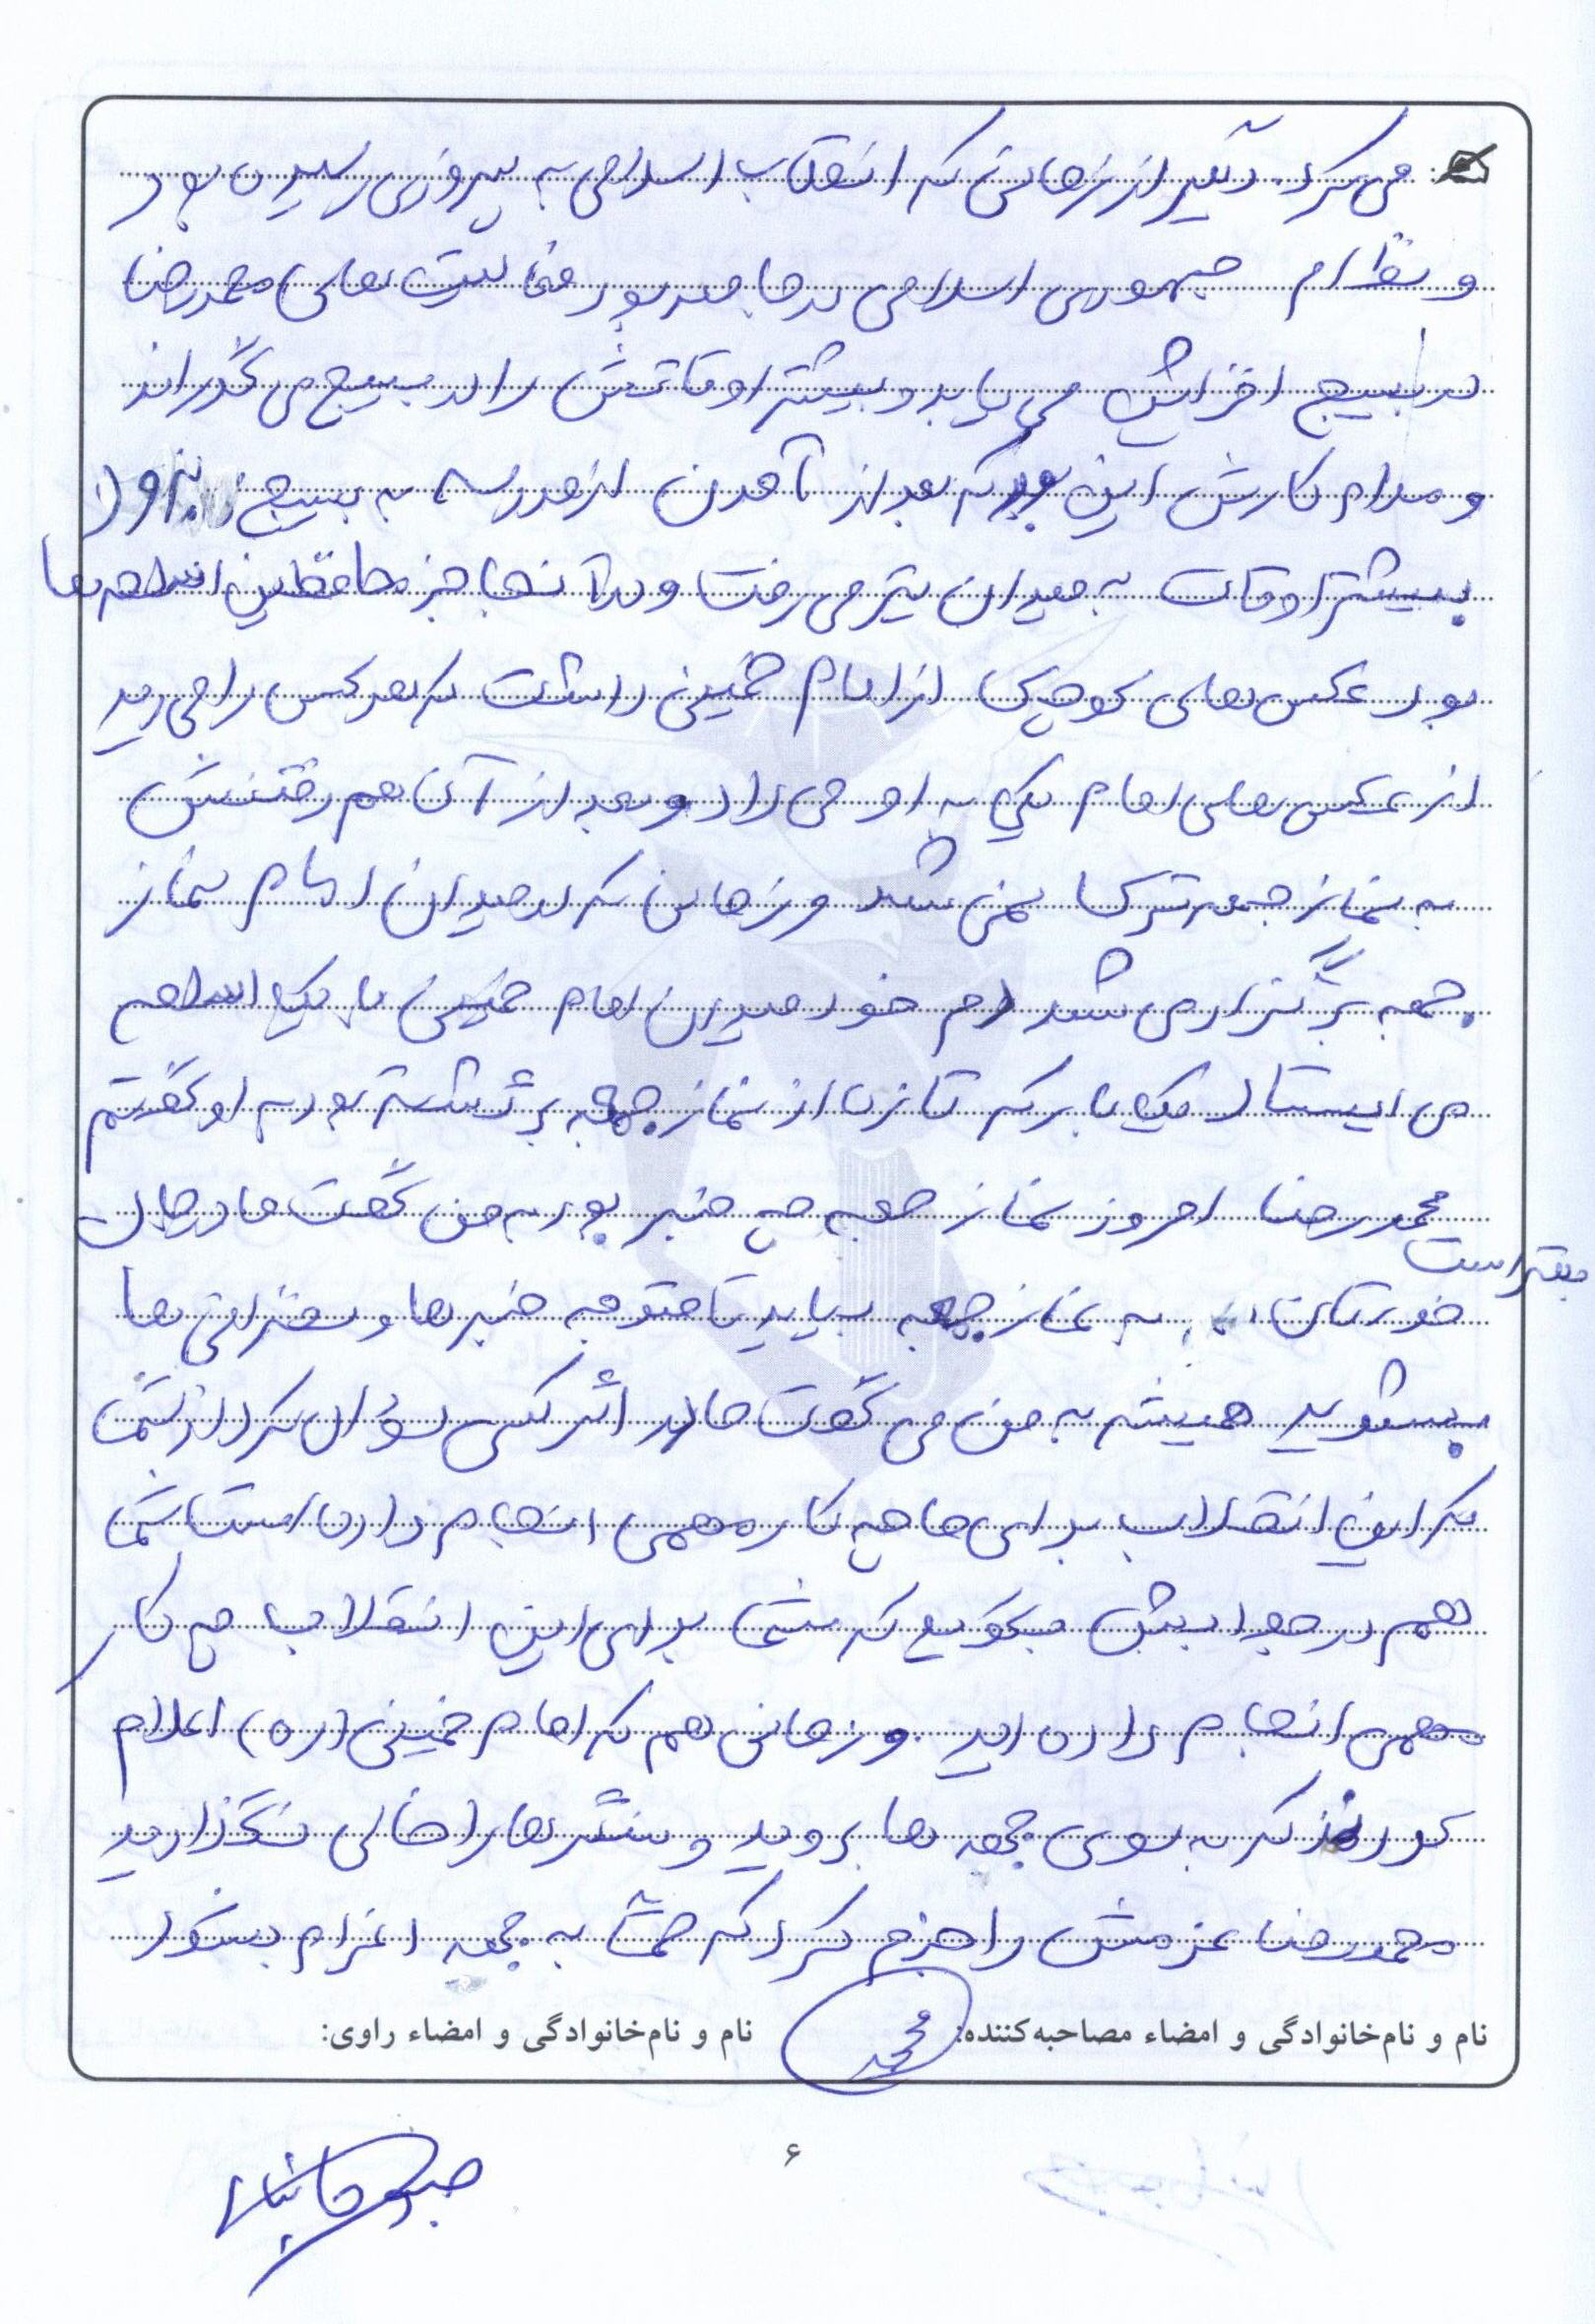 می کرد. دیگر از زمانی که انقلاب اسلامی به پیروزی رسیده بود
و نظام جمهوری اسلامی برجا بود فعالیت های محمدرضا
در بسیج افزایش می یابد و بیشتر اوقاتش را در بسیج می گذراند
و مدام کارش این بود که بعد از آمدن از مدرسه به بسیج برود
بیشتر اوقات به میدان تیر می رفت و در آنجا جز محافظین اسلحه ها
بود عکس های کوچک از امام خمینی داشت که هر کس را می دید
از عکس های امام یکی به او می داد و بعد از آن هم رفتنش
به نماز جمعه ترک نمی شد و زمانی که در میدان امام نماز
جمعه برگزار می شد دم خود میدان امام خمینی با یک اسلحه
می ایستاد یک بار که تازه از نماز جمعه برگشته بود به او گفتم
محمدرضا امروز نماز جمعه چه خبر بود به من گفت مادرجان
بهتر است
خودتان به نماز جمعه بیاید تا متوجه خبرها و سخنرانی ها
بشوید همیشه به من می گفت مادر اگر کسی سؤال کرد از شما
که این انقلاب برای ما چه کار مهمی انجام داده است شما
هم در جوابش بگویید که شما برای این انقلاب چه کار
مهمی انجام داده اید. و زمانی هم که امام خمینی (ره) اعلام
کردند که به سوی جبهه ها بروید و سنگرها را خالی نگذارید
محمدرضا عزمش را جزم کرد که حتما به جبهه اعزام بشود
نام و نام‌خانوادگی و امضاء مصاحبه‌کننده: محمد
نام و نام‌خانوادگی و امضاء راوی:
۶